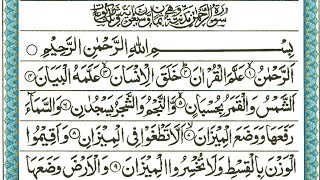 سورة الرحمن مدنية وهي ثمان وسبعون آية
بِسْمِ اللهِ الرَّحْمٰنِ الرَّحِيْمِ
اَلرَّحْمٰنُ ۙ۱ عَلَّمَ الْقُرْاٰنَ ؕ۲ خَلَقَ الْاِنْسَانَ ۙ۳ عَلَّمَهُ الْبَيَانَ ۴
اَلشَّمْسُ وَالْقَمَرُ بِحُسْبَانٍ ۪۵ وَّالنَّجْمُ وَالشَّجَرُ يَسْجُدٰنِ ۶ وَالسَّمَآءَ
رَفَعَهَا وَوَضَعَ الْمِيْزَانَ ۙ۷ اَلَّا تَطْغَوْا فِى الْمِيْزَانِ ۸ وَاَقِيْمُوا
الْوَزْنَ بِالْقِسْطِ وَلَا تُخْسِرُوا الْمِيْزَانَ ۹ وَالْاَرْضَ وَضَعَهَا